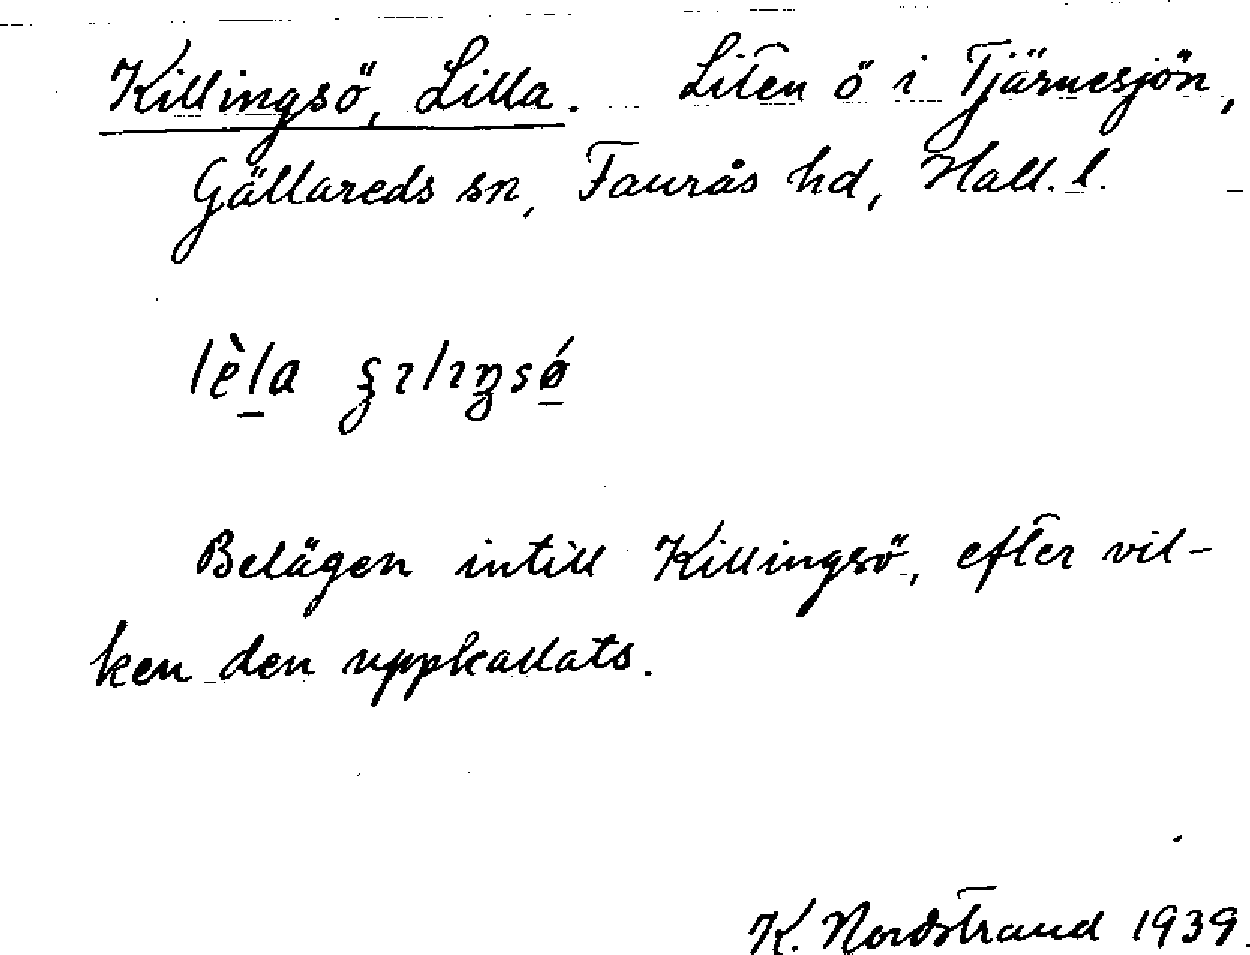 Killingsö, Lilla. Liten ö i Tjärnesjön,
Gällareds sn, Faurås hd, Hall. l.
Belägen intill Killingsö, efter vil-
ken den uppkallats.
K. Nordstrand 1939.